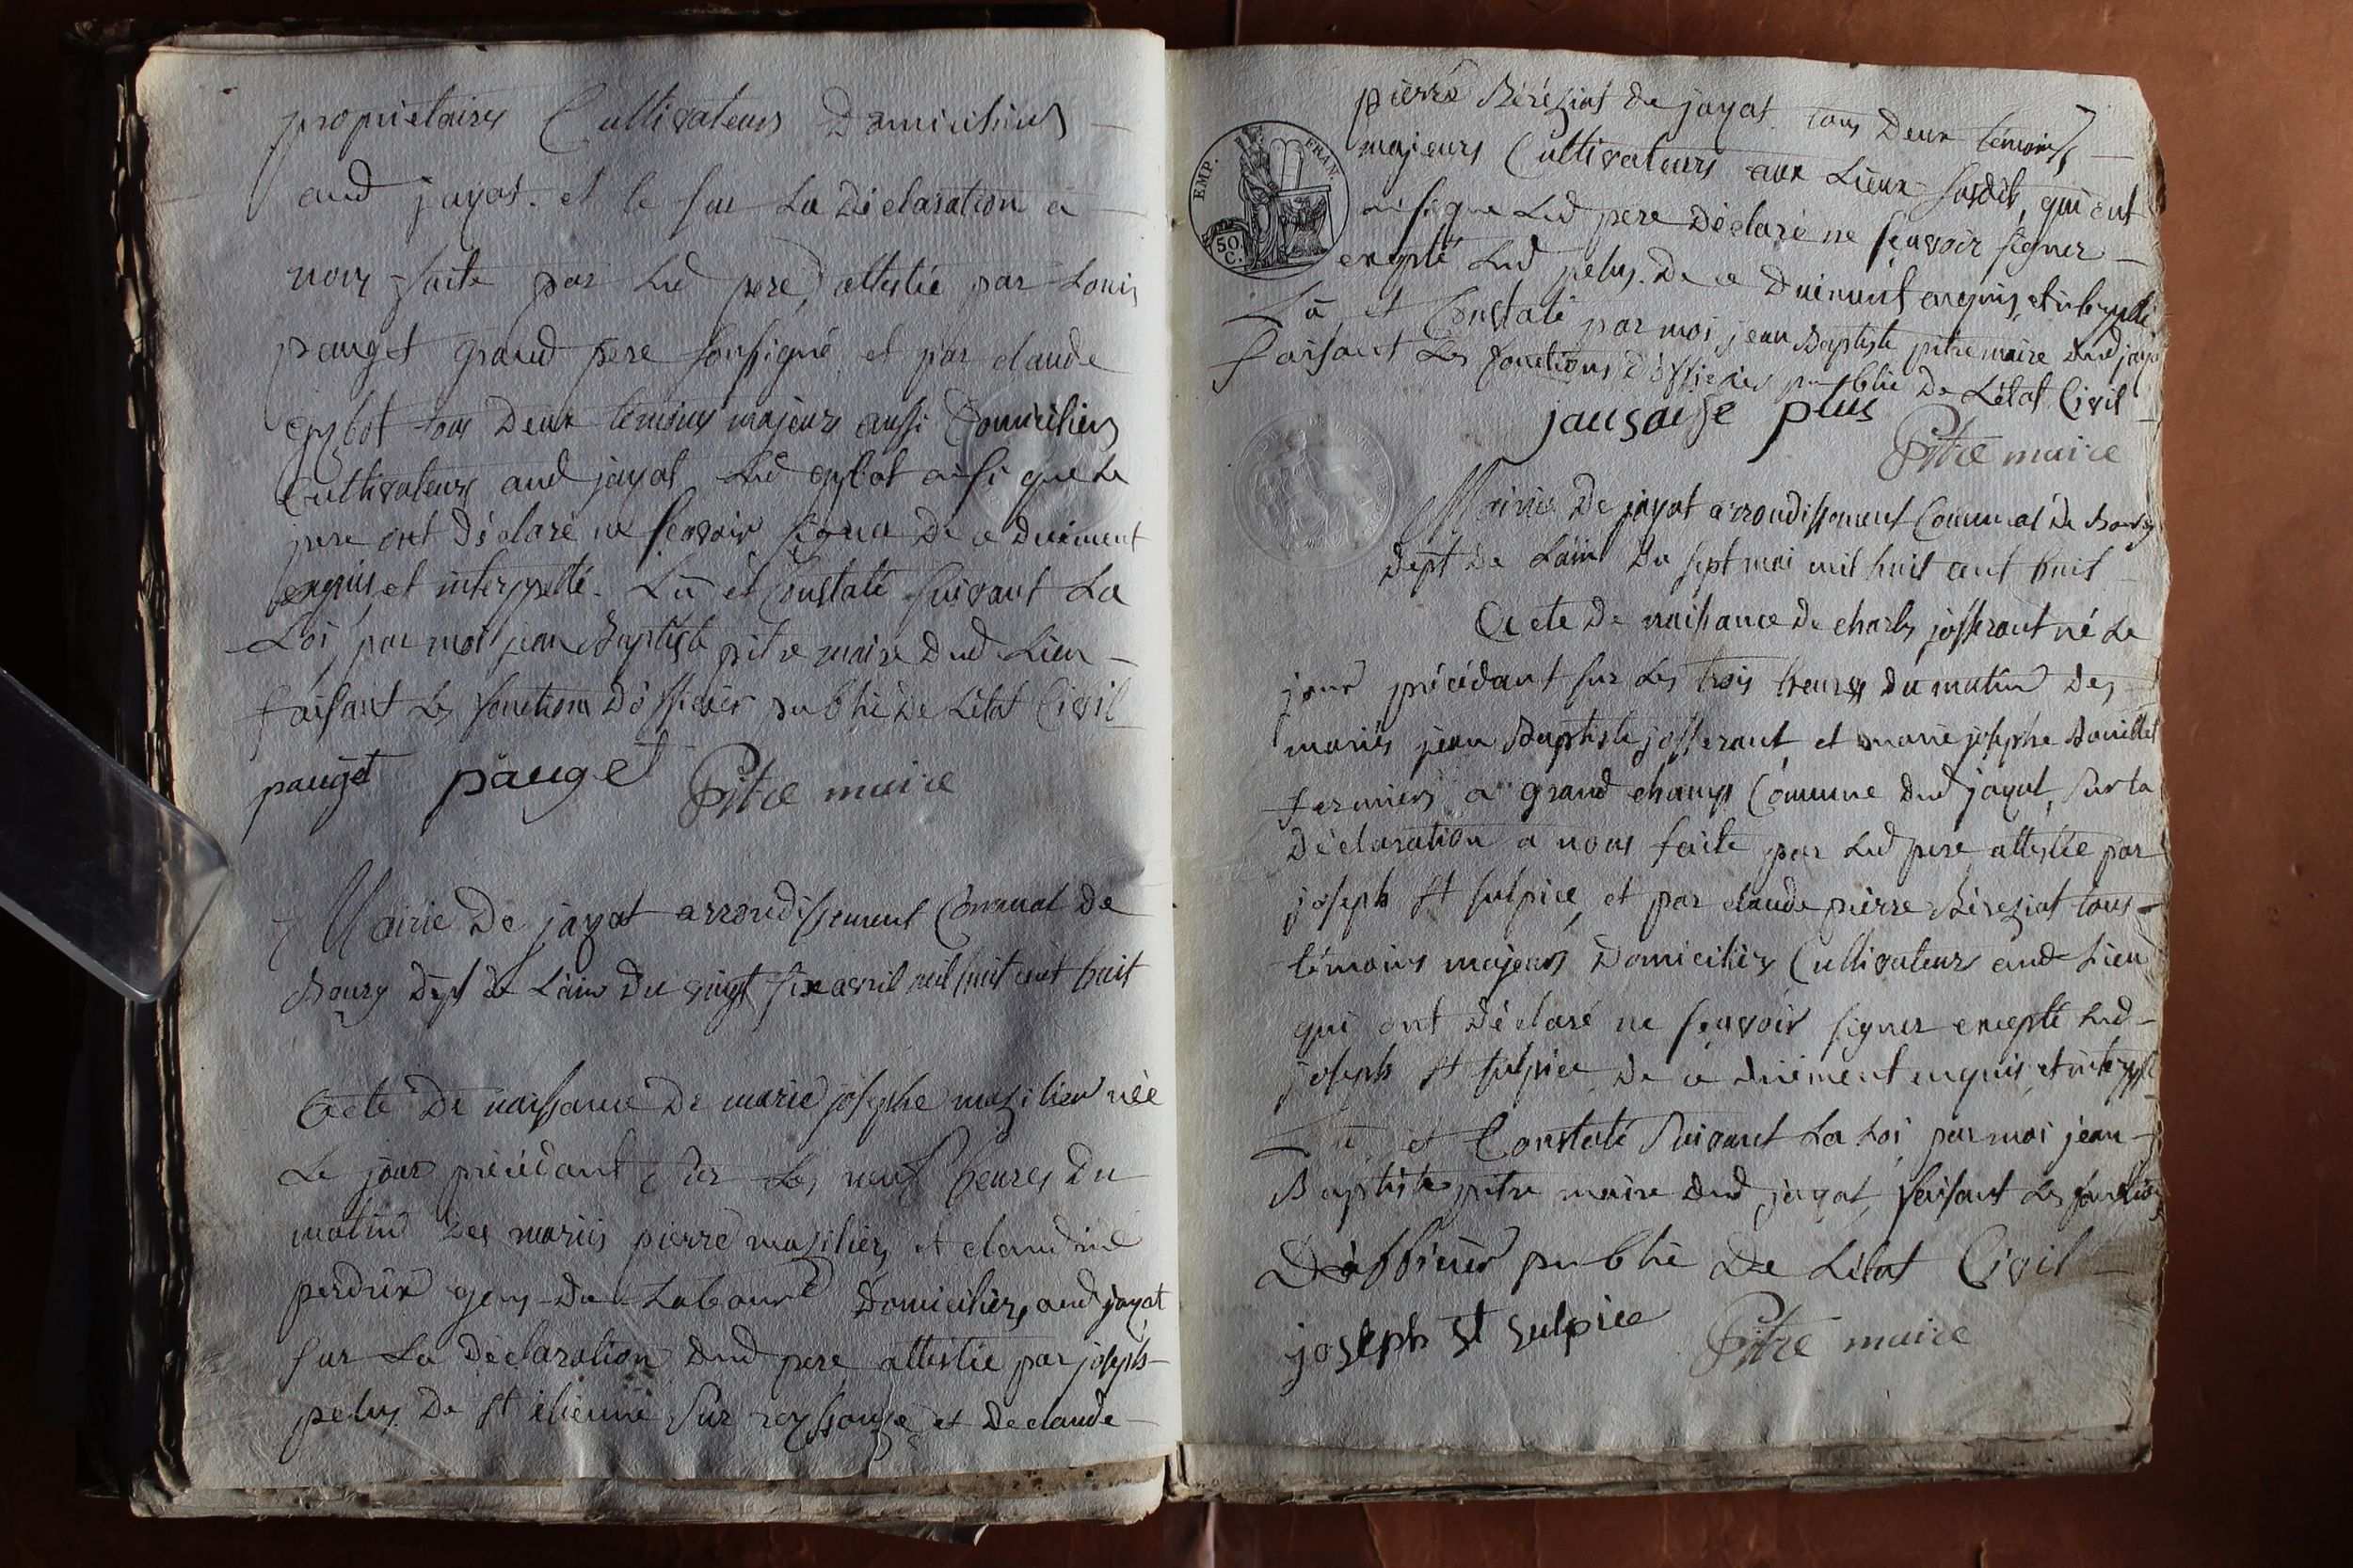 propriétaires Cultivateurs Domiciliés
aud jayat. et le sur La Déclaration a
nous faite par Led pere, attestée par Louis
pauget grand pere soussigné et par claude
tous Deux témoins majeurs aussi Domiciliés
Cultivateurs aud jayat Led ainsi que Le
pere ont Déclaré ne sçavoir signer De ce Duement
enquis et interpellé. Lû et Constaté suivant La
Loi, par moi jean Baptiste pitre maire Dud Lieu
faisant Les fonctions D'officier public De L'état Civil
pauget pauget Pitre maire
Mairie De jayat arrondissement Comunal De
Bourg Dept de L'ain Du vingt six avril mil huit cent huit
Acte De naissance De marie josephe mazilier née
Le jour précédant sur Les neuf heures Du
matin Des mariés pierre mazilier et claudine
perdrix gens De Labour Domiciliés aud jayat
sur La Déclaration Dud pere attestée par joseph
pelus De St étienne sur reyssouze et De claude
pierre Béréziat de jayat tous Deux témoins
majeurs Cultivateurs aux Lieux susdits, qui ont
EMP. FRAN.
50 C.
ainsi que Led pere Déclaré ne sçavoir signer
excepté Led pelus. De ce Duement enquis et interpellé
Lû et Constaté par moi jean Baptiste pitre maire Dud jayat
faisant Les fonctions D'officier public De L'état Civil
Pitre maire
Mairie De jayat arrondissement Comunal De Bourg
Dept De L'ain Du sept mai mil huit cent huit
Acte De naissance De charles josserant né Le
jour précédant sur Les trois heures Du matin Des
mariés jean Baptiste josserant et marie josephe Bouillet
fermiers a grand champ Comune Dud jayat, sur La
Déclaration a nous faite par Led pere attestée par
joseph St sulpice, et par claude pierre Béréziat tous
témoins majeurs Domiciliés Cultivateurs aud Lieu
qui ont Déclaré ne sçavoir signer excepté Led
joseph St sulpice De ce Duement enquis et interpellé
Lû et Constaté suivant La Loi par moi jean
Baptiste pitre maire Dud jayat faisant Les fonctions
D'officier public De L'état Civil
joseph St sulpice Pitre maire